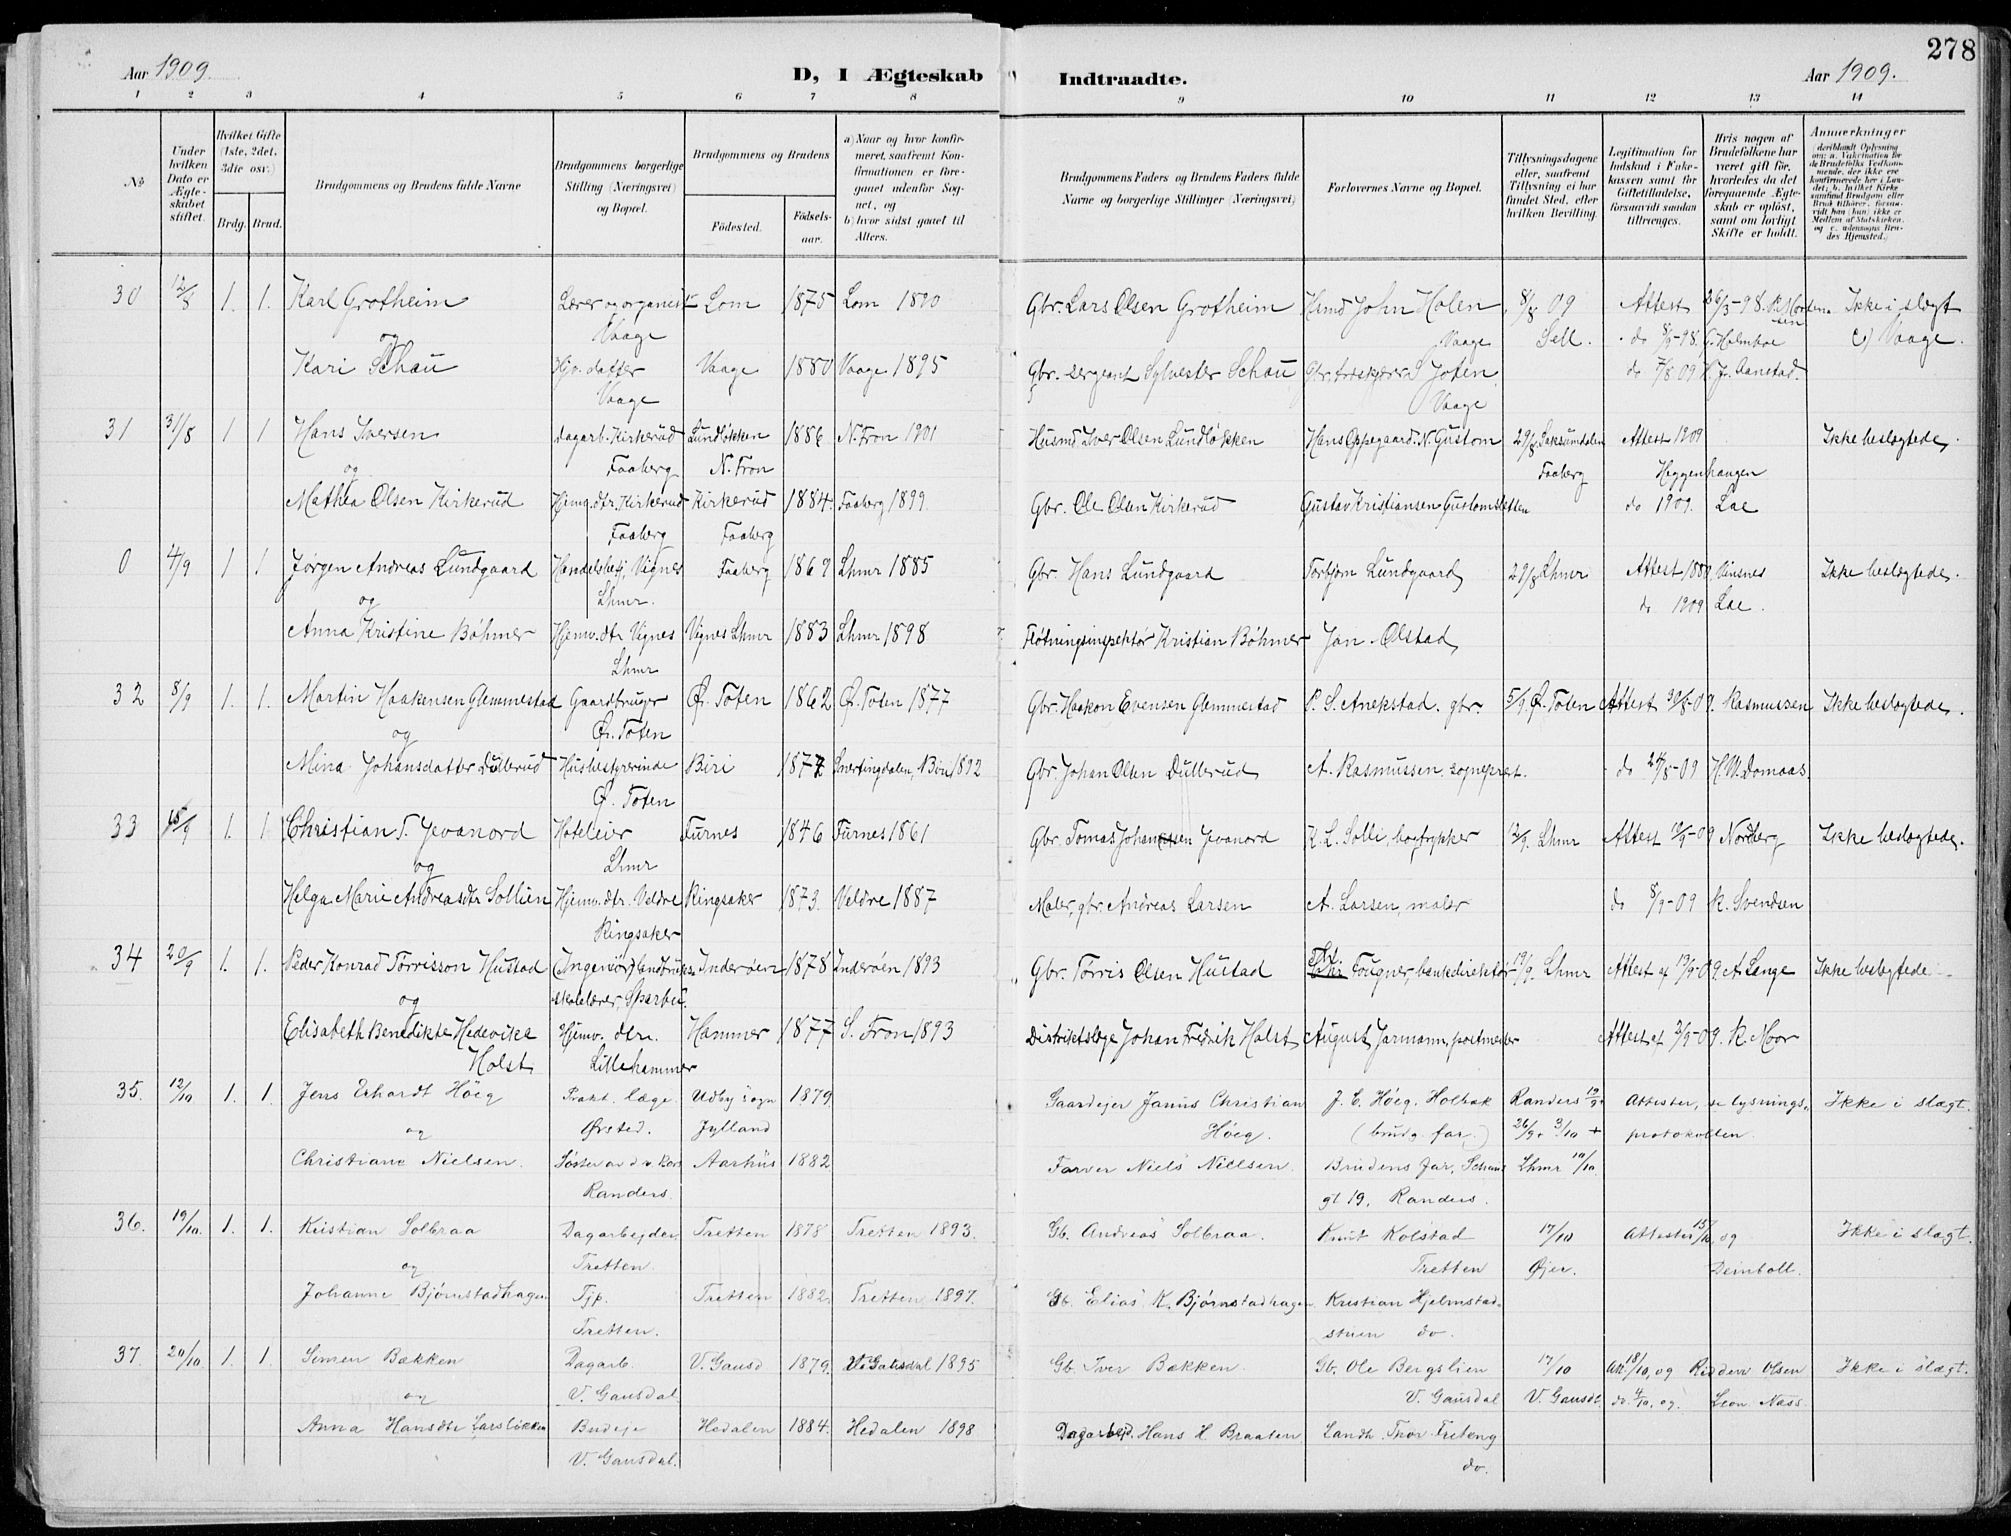 278
Aar 1909.
D, I Ægteskab
Indtraadte.
Aar 1909.
1 2 3 4 5 6 7 8 9 10 11 12 13 14
No
Under hvilken Dato er Ægteskabet stiftet.
Hvilket Gifte (1ste, 2det, 3die osv.)
Brdg. Brud.
Brudgommens og Brudens fulde Navne
Brudgommens borgerlige Stilling (Næringsvei) og Bopæl.
Brudgommens og Brudens
Födested.
Födselsaar.
a) Naar og hvor konfirmeret, saafremt Konfirmationen er foregaaet udenfor Sognet, og
b) hvor sidst gaaet til Alters.
Brudgommens Faders og Brudens Faders fulde Navne og borgerlige Stillinger (Næringsvei)
Forlovernes Navne og Bopæl.
Tillysningsdagene eller, saafremt Tillysning ei har fundet Sted, efter hvilken Bevilling.
Legitimation for Indskud i Enkekassen samt for Giftetilladelse, forsaavidt saadan tiltrænges.
Hvis nogen af Brudefolkene har været gift för, hvorledes da det foregaaende Ægteskab er oplöst, samt om lovligt Skifte er holdt.
Anmerkninger
30 12/8 1. 1. Karl Grotheim Lærer og organist Lom 1875 Lom 1890 Gbr. Lars Olsen Grotheim Hsmd John Holen 8/8 09 Attest 26/3-98. Ikke i slegt
og Vaage Vaage Sell. do 8/5-98. Holmboe c) Vaage.
Kari Schau Hjv. datter Vaage 1880 Vaage 1895 Gbr. sergeant Sylvester Schau Joten do 7/8 09 J. Aanstad.
Vaage Vaage
31 31/8 1 1 Hans Iversen Dagarb. Kirkerud Lundløkken 1886 N. Fron 1901 Husmd Iver Olsen Lundløkken Hans Oppegaard N. Gustom 29/8 Saksumdalen Attest 1909 Ikke beslegtede.
og Faaberg N. Fron Faaberg Heggenhaugen
Mathea Olsen Kirkerud Hjemv. dtr. Kirkerud Kirkerud 1884. Faaberg 1899 Gbr. Ole Olsen Kirkerud Gustav Kristiansen Gustomsletten do 1909. Lae
Faaberg Faaberg
0 4/9 1 1 Jørgen Andreas Lundgaard Handelsbetj. Vignes Faaberg 1869 Lhmr 1885 Gbr. Hans Lundgaard Torbjørn Lundgaard 29/8 Lhmr Attest 1889 Vinsnes Ikke beslegtede.
og Lhmr. do 1909 Lae.
Anna Kristine Bøhmer Hjemv. dtr Vignes Vignes Lhmr 1883 Lhmr 1898 Fløtningsinspektør Kristian Bøhmer Jan Olstad
Lhmr
32 8/9 1. 1. Martin Haakensen Glemmestad Gaardbruger Ø. Toten 1862 Ø. Toten 1877 Gbr. Haakon Evensen Glemmestad P. S. Anekstad. gbr. 5/9 Ø. Toten Attest 30/8-09. Rasmussen Ikke beslegtede.
og Ø. Toten
Mina Johansdatter Dullerud Husbestyrerinde Biri 1877 Snertingdalen, Biri 1892 Gbr Johan Olsen Dullerud A. Rasmussen, sogneprest. do 24/8-09 H. W. Domaas
Ø. Toten
33 18/9 1. 1. Christian T. Jevanord Hoteleier Furnes 1846 Furnes 1861 Gbr. Tomas Johannsen Jevanord K. L. Solli, bogtrykker 12/9. Lhmr Attest 10/9-09 Nordberg Ikke beslegtede.
og Lhmr
Helga Marie Andreasdtr Sollien Hjemv. dtr. Veldre Ringsaker 1873. Veldre 1887 Maler, gbr. Andreas Larsen A. Larsen, maler do 8/9-09 K. Svendsen
Ringsaker
34 20/9 1. 1. Peder Konrad Torrisson Hustad (Ingeniør) landbruks Inderøen 1878 Inderøen 1893 Gbr. Tørris Olsen Hustad Chr. Fougner, bankdirektør 19/9. Lhmr Attest af 19/9-09. A. Lange Ikke beslegtede
og skolelærer, Sparbu.
Elisabeth Benedikte Hedevika Hjemv. dtr. Hammer 1877 S. Fron 1893 Distriktslæge Johan Fredrik Holst August Jarmann, postmester Attest af 2/9-09. K. Moor
Holst Lillehammer
35. 12/10 1. 1. Jens Erhardt Höeg Prakt. læge. Udby sogn 1879. Gaardejer Janus Christian J. C. Höeg. Holbæk Randers 19/9+ Attester, se lysnings- Ikke i slægt.
og Ørsted. Jylland Höeg. (brudg. far.) 26/9+ 3/10 + protokollen.
Christiane Nielsen. Søster av d. r. Kors Aarhus 1882 Farver Niels Nielsen. Brudens far, Lhmr 10/10.
Randers. gt 19. Randers.
36. 19/10. 1. 1. Kristian Solbraa Dagarbejder Tretten 1878 Tretten 1893. Gb. Andreas Solbraa. Knut Kolstad 17/10 Attester 15/10, og Ikke i slægt.
og Tretten. Tretten Øjer. Deinboll.
Johanne Bjørnstadhagen Tjp. Tretten 1882. Tretten 1897. Gb. Elias K. Bjørnstadhagen. Kristian Hjelmstad-
Tretten. stuen do.
37. 20/10 1. 1. Simen Bækken Dagarb. V. Gausd 1879. V. Gausdal 1895 Gb. Iver Bækken. Gb. Ole Bergslien 17/10 Att. 18/10, og Olsen Ikke i slægt.
og V. Gausdal V. Gausdal V. Gausd. do. 4/10, og. Leon Næss.
Anna Hansdtr Larsløkken Budeje Hedalen 1884. Hedalen 1898 Dagarbejd. Hans H. Braaten Landh. Thor Treteng
V. Gausdal. do.